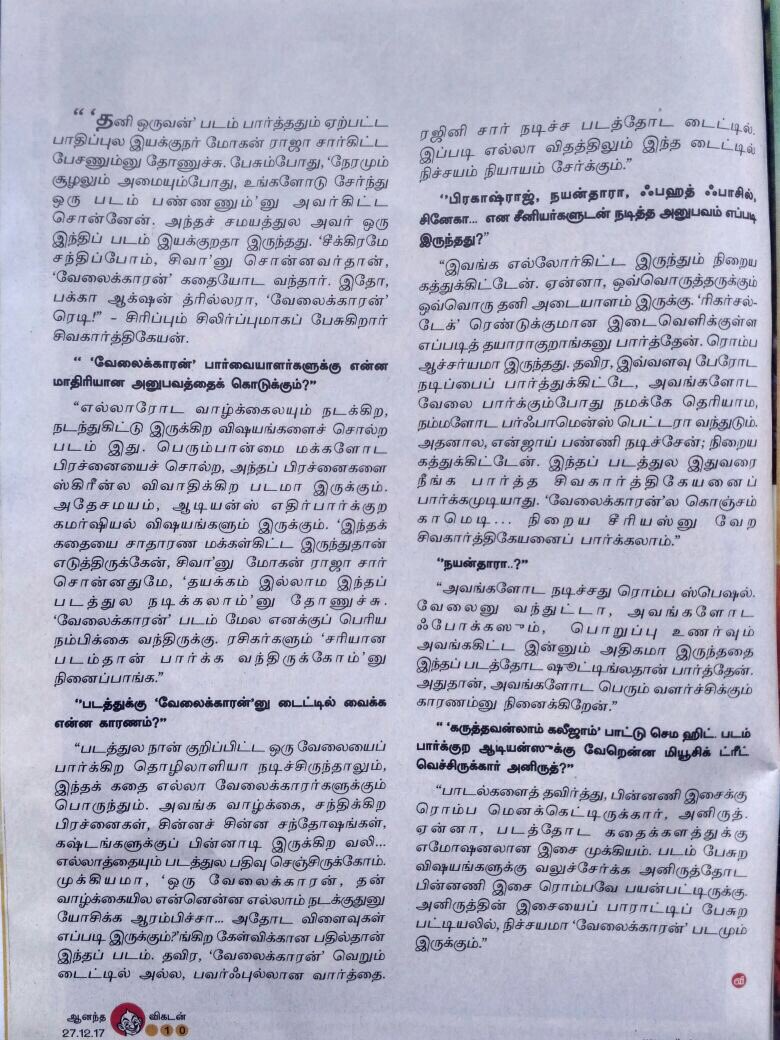 “ ‘தனி ஒருவன்’ படம் பார்த்ததும் ஏற்பட்ட
பாதிப்புல இயக்குநர் மோகன் ராஜா சார்கிட்ட
பேசணும்னு தோணுச்சு. பேசும்போது, ‘நேரமும்
சூழலும் அமையும்போது, உங்களோடு சேர்ந்து
ஒரு படம் பண்ணணும்’னு அவர்கிட்ட
சொன்னேன். அந்தச் சமயத்துல அவர் ஒரு
இந்திப் படம் இயக்குறதா இருந்தது. ‘சீக்கிரமே
சந்திப்போம், சிவா’னு சொன்னவர்தான்,
‘வேலைக்காரன்’ கதையோட வந்தார். இதோ,
பக்கா ஆக்‌ஷன் த்ரில்லரா, ‘வேலைக்காரன்’
ரெடி!” – சிரிப்பும் சிலிர்ப்புமாகப் பேசுகிறார்
சிவகார்த்திகேயன்.
“ ‘வேலைக்காரன்’ பார்வையாளர்களுக்கு என்ன
மாதிரியான அனுபவத்தைக் கொடுக்கும்?”
“எல்லாரோட வாழ்க்கைலயும் நடக்கிற,
நடந்துகிட்டு இருக்கிற விஷயங்களைச் சொல்ற
படம் இது. பெரும்பான்மை மக்களோட
பிரச்னையைச் சொல்ற, அந்தப் பிரச்னைகளை
ஸ்கிரீன்ல விவாதிக்கிற படமா இருக்கும்.
அதேசமயம், ஆடியன்ஸ் எதிர்பார்க்குற
கமர்ஷியல் விஷயங்களும் இருக்கும். ‘இந்தக்
கதையை சாதாரண மக்கள்கிட்ட இருந்துதான்
எடுத்திருக்கேன், சிவா’னு மோகன் ராஜா சார்
சொன்னதுமே, ‘தயக்கம் இல்லாம இந்தப்
படத்துல நடிக்கலாம்’னு தோணுச்சு.
‘வேலைக்காரன்’ படம் மேல எனக்குப் பெரிய
நம்பிக்கை வந்திருக்கு. ரசிகர்களும் ‘சரியான
படம்தான் பார்க்க வந்திருக்கோம்’னு
நினைப்பாங்க.”
“படத்துக்கு ‘வேலைக்காரன்’னு டைட்டில் வைக்க
என்ன காரணம்?”
“படத்துல நான் குறிப்பிட்ட ஒரு வேலையைப்
பார்க்கிற தொழிலாளியா நடிச்சிருந்தாலும்,
இந்தக் கதை எல்லா வேலைக்காரர்களுக்கும்
பொருந்தும். அவங்க வாழ்க்கை, சந்திக்கிற
பிரச்னைகள், சின்னச் சின்ன சந்தோஷங்கள்,
கஷ்டங்களுக்குப் பின்னாடி இருக்கிற வலி...
எல்லாத்தையும் படத்துல பதிவு செஞ்சிருக்கோம்.
முக்கியமா, ‘ஒரு வேலைக்காரன், தன்
வாழ்க்கையில என்னென்ன எல்லாம் நடக்குதுனு
யோசிக்க ஆரம்பிச்சா... அதோட விளைவுகள்
எப்படி இருக்கும்?’ங்கிற கேள்விக்கான பதில்தான்
இந்தப் படம். தவிர, ‘வேலைக்காரன்’ வெறும்
டைட்டில் அல்ல, பவர்ஃபுல்லான வார்த்தை.
ரஜினி சார் நடிச்ச படத்தோட டைட்டில்.
இப்படி எல்லா விதத்திலும் இந்த டைட்டில்
நிச்சயம் நியாயம் சேர்க்கும்.”
“பிரகாஷ்ராஜ், நயன்தாரா, ஃபஹத் ஃபாசில்,
சினேகா... என சீனியர்களுடன் நடித்த அனுபவம் எப்படி
இருந்தது?”
“இவங்க எல்லோர்கிட்ட இருந்தும் நிறைய
கத்துக்கிட்டேன். ஏன்னா, ஒவ்வொருத்தருக்கும்
ஒவ்வொரு தனி அடையாளம் இருக்கு. ‘ரிகர்சல்-
டேக்’ ரெண்டுக்குமான இடைவெளிக்குள்ள
எப்படித் தயாராகுறாங்கனு பார்த்தேன். ரொம்ப
ஆச்சர்யமா இருந்தது. தவிர, இவ்வளவு பேரோட
நடிப்பைப் பார்த்துக்கிட்டே, அவங்களோட
வேலை பார்க்கும்போது நமக்கே தெரியாம,
நம்மளோட பர்ஃபாமென்ஸ் பெட்டரா வந்துடும்.
அதனால, என்ஜாய் பண்ணி நடிச்சேன்; நிறைய
கத்துக்கிட்டேன். இந்தப் படத்துல இதுவரை
நீங்க பார்த்த சிவகார்த்திகேயனைப்
பார்க்கமுடியாது. ‘வேலைக்காரன்’ல கொஞ்சம்
காமெடி... நிறைய சீரியஸ்னு வேற
சிவகார்த்திகேயனைப் பார்க்கலாம்.”
“நயன்தாரா..?”
“அவங்களோட நடிச்சது ரொம்ப ஸ்பெஷல்.
வேலைனு வந்துட்டா, அவங்களோட
ஃபோக்கஸும், பொறுப்பு உணர்வும்
அவங்ககிட்ட இன்னும் அதிகமா இருந்ததை
இந்தப் படத்தோட ஷூட்டிங்லதான் பார்த்தேன்.
அதுதான், அவங்களோட பெரும் வளர்ச்சிக்கும்
காரணம்னு நினைக்கிறேன்.”
“ ‘கருத்தவன்லாம் கலீஜாம்’ பாட்டு செம ஹிட். படம்
பார்க்குற ஆடியன்ஸுக்கு வேறென்ன மியூசிக் ட்ரீட்
வெச்சிருக்கார் அனிருத்?”
“பாடல்களைத் தவிர்த்து, பின்னணி இசைக்கு
ரொம்ப மெனக்கெட்டிருக்கார், அனிருத்.
ஏன்னா, படத்தோட கதைக்களத்துக்கு
எமோஷனலான இசை முக்கியம். படம் பேசுற
விஷயங்களுக்கு வலுச்சேர்க்க அனிருத்தோட
பின்னணி இசை ரொம்பவே பயன்பட்டிருக்கு.
அனிருத்தின் இசையைப் பாராட்டிப் பேசுற
பட்டியலில், நிச்சயமா ‘வேலைக்காரன்’ படமும்
இருக்கும்.”
வி
ஆனந்த விகடன்
27.12.17 10